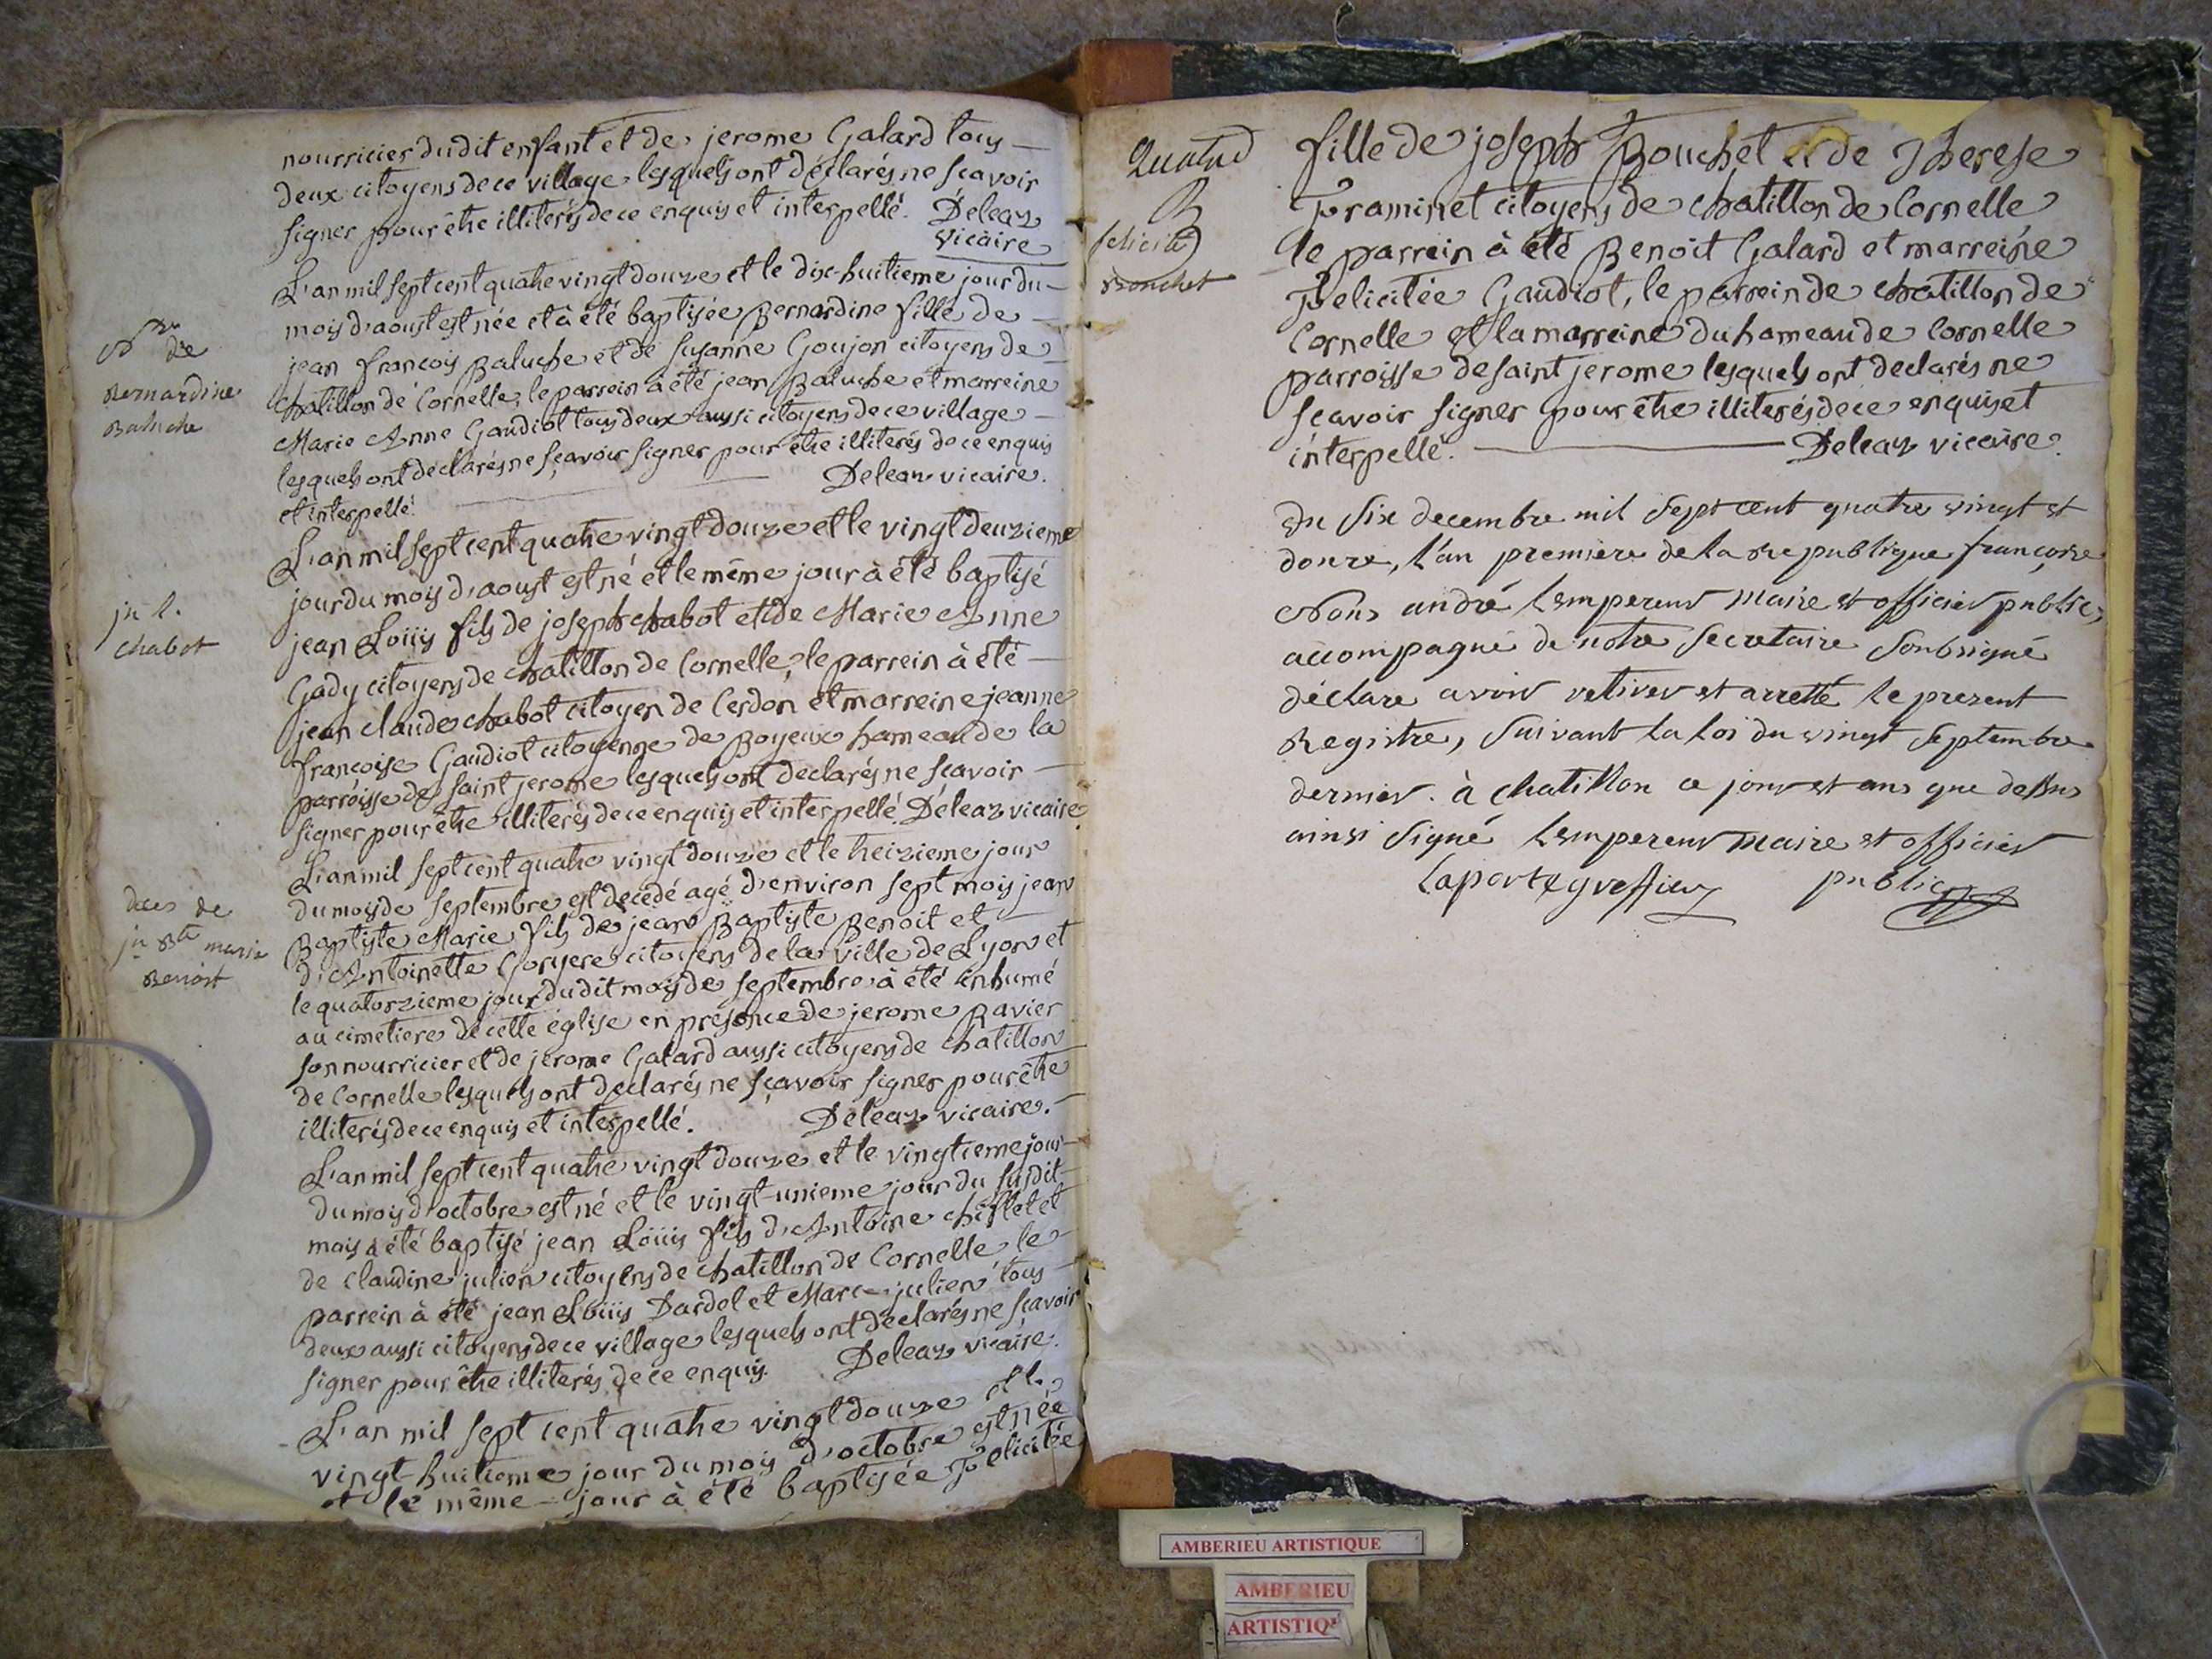 nourricier dudit enfant et de jerome Galard tous
deux citoyens de ce village lesquels ont déclarés ne scavoir
signer pour être illiterés de ce enquis et interpellé. Déleaz
vicaire
L'an mil sept cent quatre vingt douze et le dix-huitieme jour du
mois d'aoust est née et à été baptisée Bernardine fille de
jean francois Baluche et de susanne Goujon citoyens de
chatillon de Cornelle, le parrein à été jean Baluche et marreine
Marie Anne Gaudiot tous deux aussi citoyens de ce village
lesquels ont déclarés ne sçavoir signer pour être illiterés de ce enquis
et interpellé. Deleaz vicaire.
Bernardine
Baluche
L'an mil sept cent quatre vingt douze et le vingt deuzieme
jour du mois d'aoust est né et le même jour à été baptisé
jean Loüis fils de joseph chabot et de Marie Anne
Gady citoyens de chatillon de Cornelle, le parrein à été
jean claude chabot citoyen de Cerdon et marreine jeanne
françoise Gaudiot citoyenne de Boyeux hameau de la
parroisse de saint jerome lesquels ont declarés ne scavoir
signer pour être illiterés de ce enquis et interpellé. Déleaz vicaire
jn l.
chabot
L'an mil sept cent quatre vingt douze et le treizieme jour
du mois de septembre est decedé agé d'environ sept mois jean
Baptiste Marie fils de jean Baptiste Benoit et
d'Antoinette citoyens de la ville de Lyon et
le quatorzieme jour dudit mois de septembre à été inhumé
au cimetiere de cette église en présence de jerome Ravier
son nourricier et de jerome Galard aussi citoyens de chatillon
de Cornelle lesquels ont declarés ne sçavoir signer pour être
illiterés de ce enquis et interpellé. Deleaz vicaire.
deces de
jn Bte marie
Benoit
L'an mil sept cent quatre vingt douze et le vingtieme jour
du mois d'octobre est né et le vingt-unieme jour du susdit
mois à été baptisé jean Loüis fils d'Antoine chifflet et
de claudine julien citoyens de chatillon de Cornelle le
parrein à été jean Loüis Dardel et Marie julien tous
deux aussi citoyens de ce village lesquels ont déclarés ne sçavoir
signer pour être illiterés de ce enquis. Deleaz vicaire.
L'an mil sept cent quatre vingt douze et le
vingt-huitieme jour du mois d'octobre est née
et le même jour à été baptisée Felicitée
B
felicité
Bouchet
fille de joseph Bouchet et de Therese
Framinet citoyens de chatillon de Cornelle
le parrein à été Benoit Galard et marreine
Felicitée Gaudiot, le parrein de chatillon de
Cornelle et la marreine du hameau de Cornelle
parroisse de saint jerome lesquels ont declarés ne
scavoir signer pour être illiterés de ce enquis et
interpellé. Deleaz vicaire.
Du six decembre mil sept cent quatre vingt et
douze, l'an premiere de la republique françoise
Nous andré Lempereur maire et officier public,
accompagné de notre Secretaire Soubsigné
déclare avoir retirer et arretté le present
Registre, Suivant la loi du vingt Septembre
dernier. à chatillon ce jour et ans que dessus
ainsi Signé Lempereur maire et officier
public
Laporte greffier
AMBERIEU ARTISTIQUE
AMBERIEU
ARTISTIQ